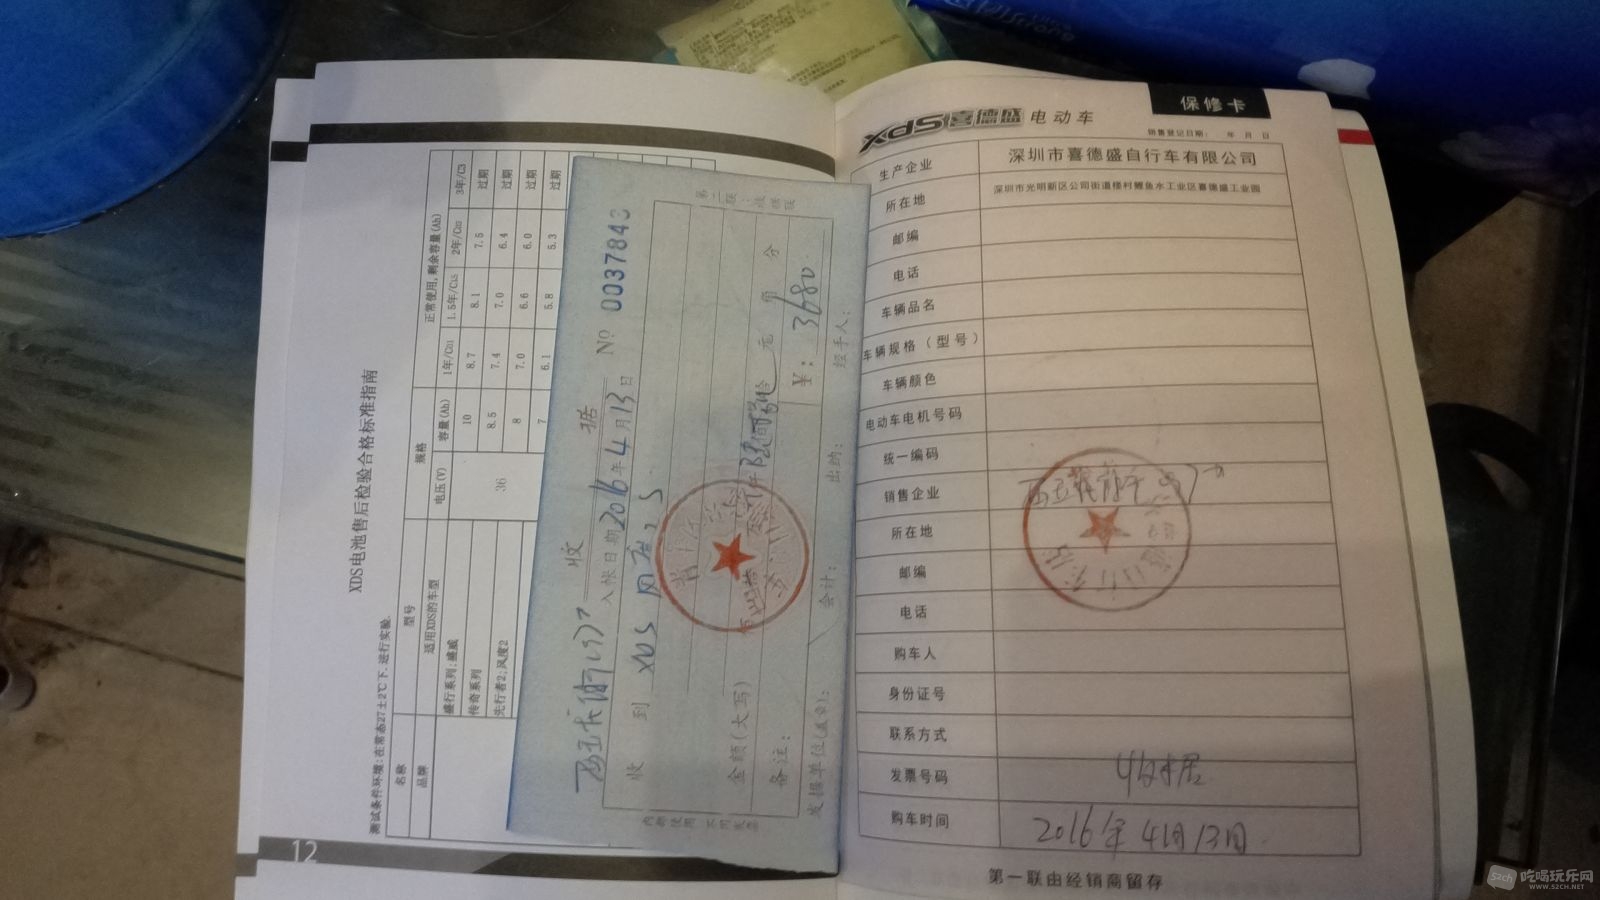 XDS电池售后检验合格标准指南
测试条件环境:在常态27±2℃下.进行实验.
名称 型号 规格 正常使用,剩余容量(Ah)
品牌 适用XDS的车型 电压(V) 容量(Ah) 1年/C 1.5年/C 2年/C 3年/C3
盛行系列:盛威 36 10 8.7 8.1 7.5 过期
传奇系列 8.5 7.4 7.0 6.4 过期
先行者2;风度2 8 7.0 6.6 6.0 过期
7 6.1 5.8 5.3 过期
12
收据
入帐日期2016年4月13日 № 0037843
收到 XDS
金额(大写) 元 角 分
¥: 3680.
备注:
会计: 出纳: 经手人:
内部使用 不同发票
保修卡
xds喜德盛 电动车
销售登记日期: 年 月 日
生产企业 深圳市喜德盛自行车有限公司
所在地 深圳市光明新区公司街道楼村鲤鱼水工业区喜德盛工业园
邮编
电话
车辆品名
车辆规格(型号)
车辆颜色
电动车电机号码
统一编码
销售企业
所在地
邮编
电话
购车人
身份证号
联系方式
发票号码 收据
购车时间 2016年4月13日.
第一联由经销商留存
52ch 吃喝玩乐网
WWW.52CH.NET